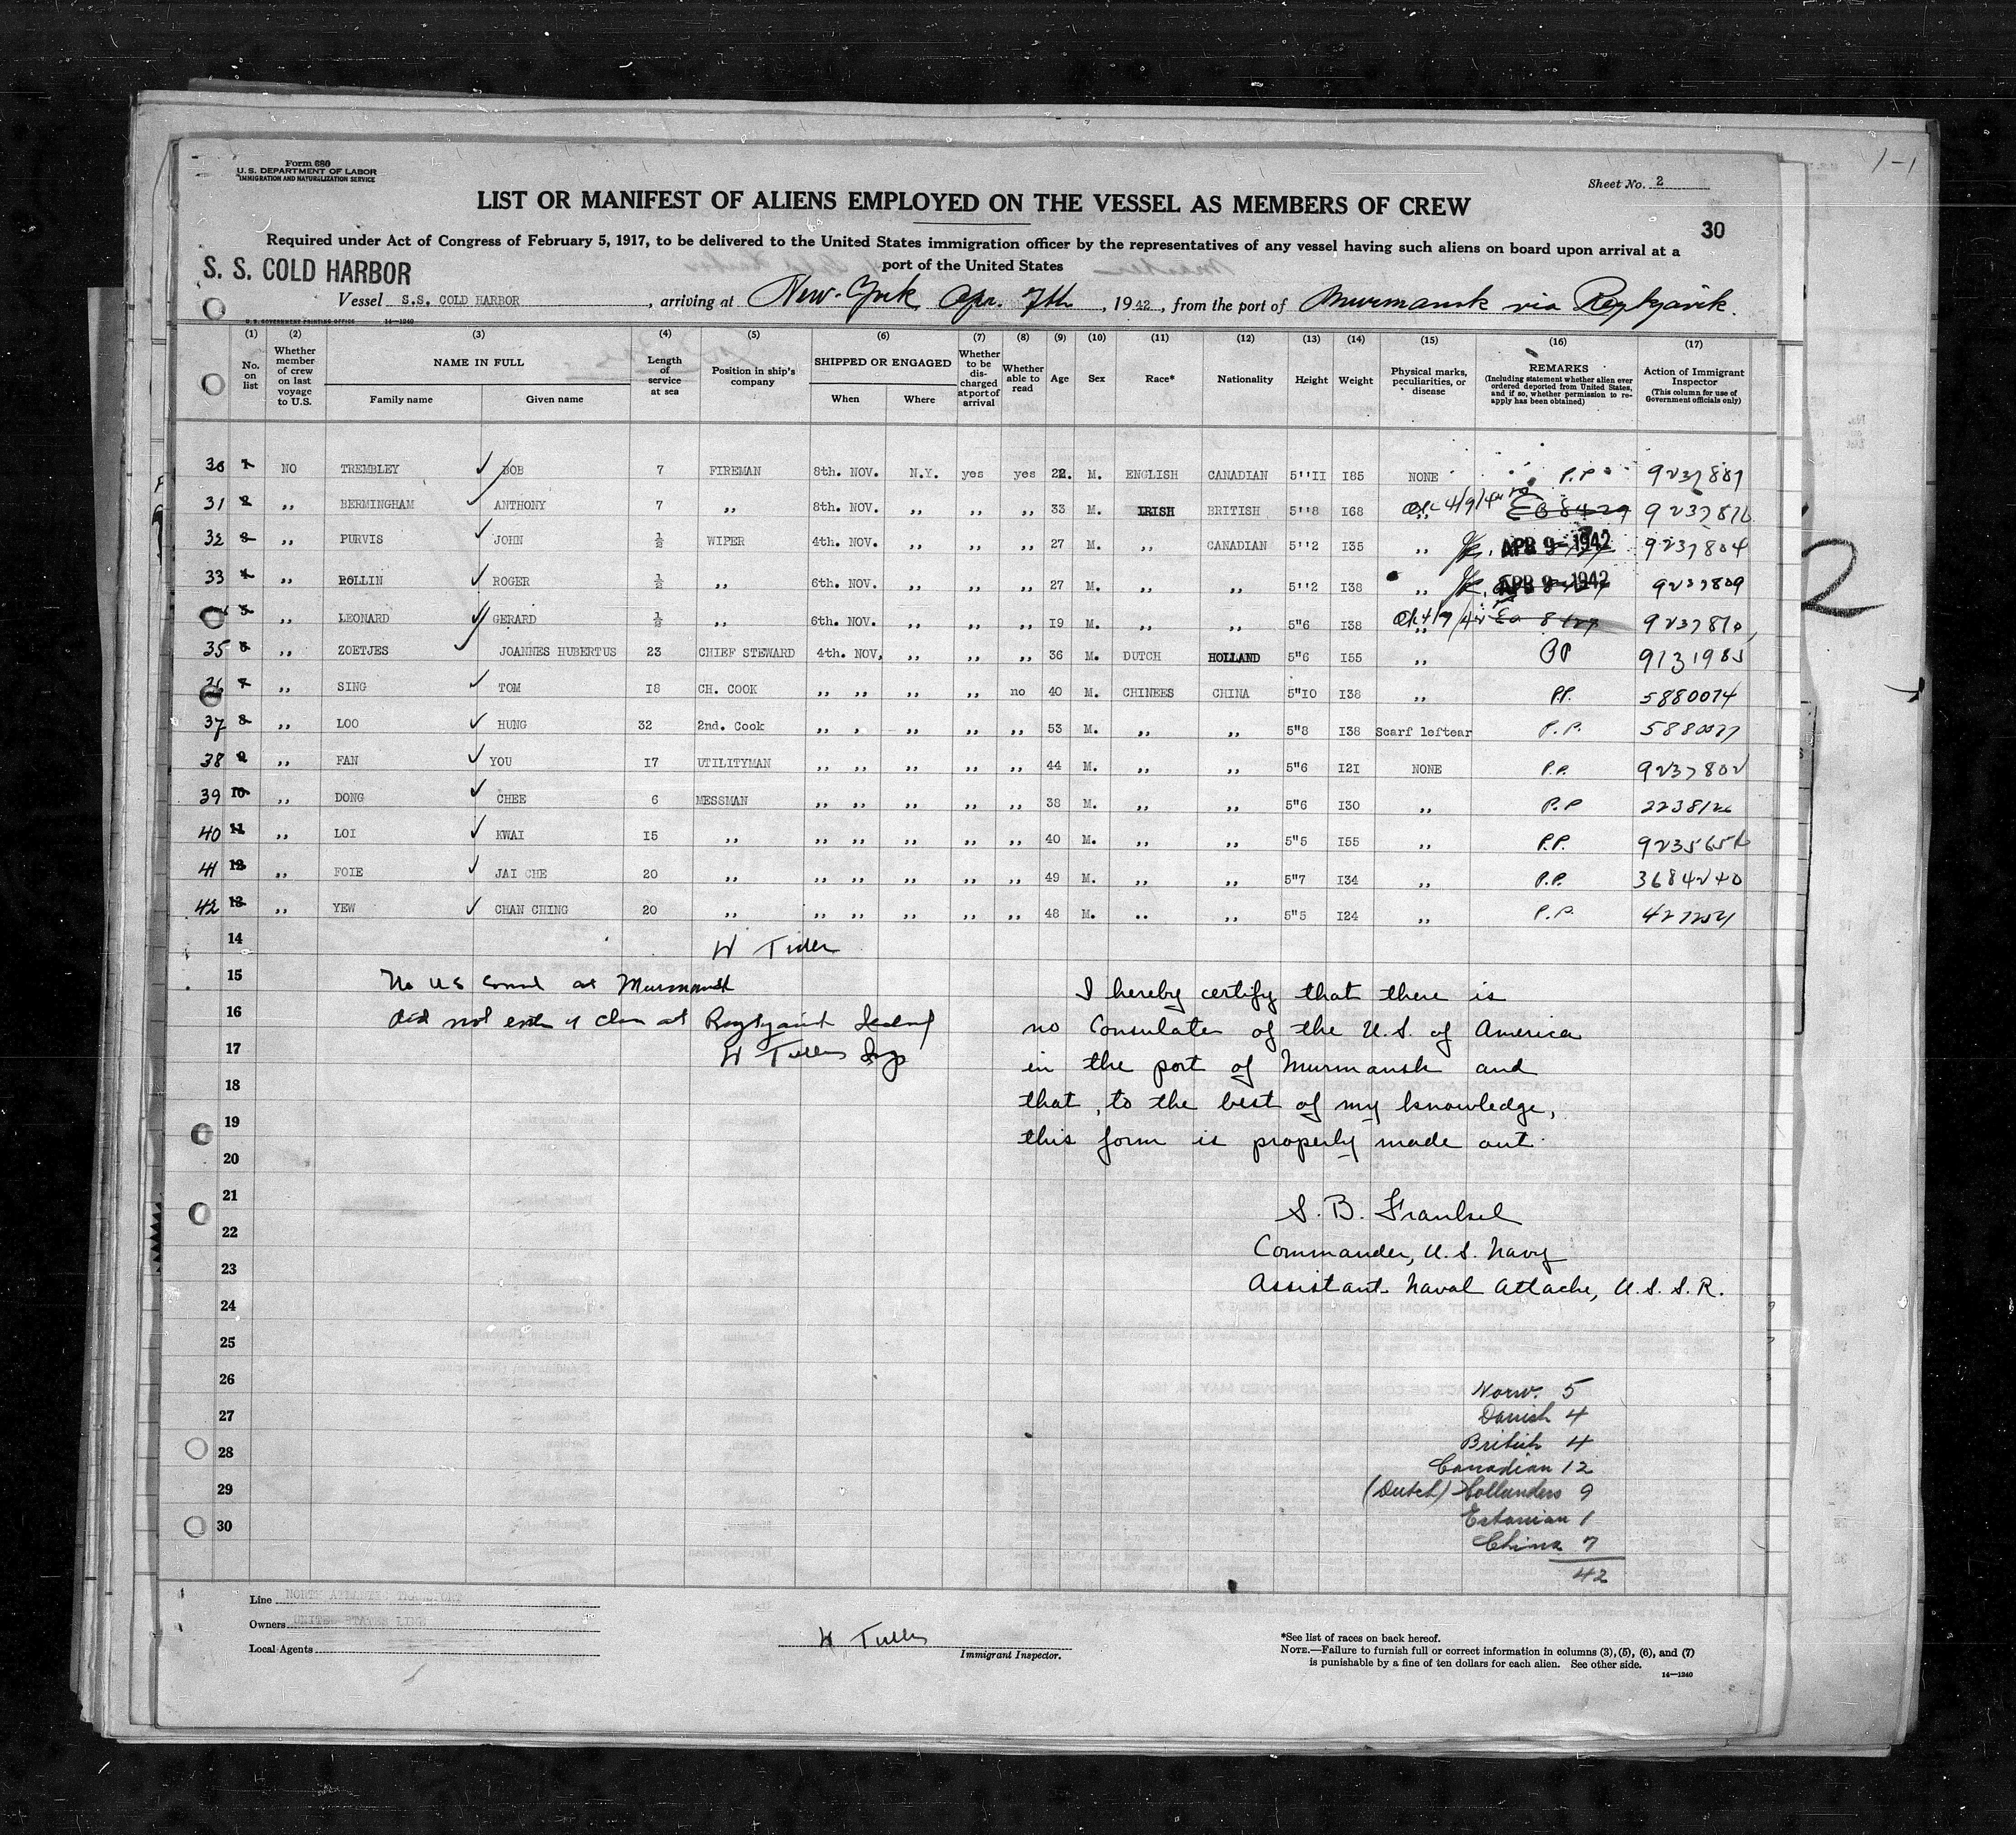 Form 680
U. S. DEPARTMENT OF LABOR
IMMIGRATION AND NATURALIZATION SERVICE
Sheet No. 2
LIST OR MANIFEST OF ALIENS EMPLOYED ON THE VESSEL AS MEMBERS OF CREW
30
Required under Act of Congress of February 5, 1917, to be delivered to the United States immigration officer by the representatives of any vessel having such aliens on board upon arrival at a
port of the United States
S. S. COLD HARBOR
Vessel S.S. COLD HARBOR, arriving at New-York Apr. 7th, 1942, from the port of Murmansk via Reykjavik.
U. S. GOVERNMENT PRINTING OFFICE 14—1240
(1) (2) (3) (4) (5) (6) (7) (8) (9) (10) (11) (12) (13) (14) (15) (16) (17)
No. on list
Whether member of crew on last voyage to U.S.
NAME IN FULL
Family name
Given name
Length of service at sea
Position in ship's company
SHIPPED OR ENGAGED
When
Where
Whether to be discharged at port of arrival
Whether able to read
Age
Sex
Race*
Nationality
Height
Weight
Physical marks, peculiarities, or disease
REMARKS
(Including statement whether alien ever ordered deported from United States, and if so, whether permission to re-apply has been obtained)
Action of Immigrant Inspector
(This column for use of Government officials only)
30 1 NO TREMBLEY BOB 7 FIREMAN 8th. NOV. N.Y. yes yes 22. M. ENGLISH CANADIAN 5''11 185 NONE P.P. 9237887
31 2 ,, BERMINGHAM ANTHONY 7 ,, 8th. NOV. ,, ,, ,, 33 M. IRISH BRITISH 5''8 168 ,, 4/9/42 9237816
32 3 ,, PURVIS JOHN ½ WIPER 4th. NOV. ,, ,, ,, 27 M. ,, CANADIAN 5''2 135 ,, APR 9-1942 9237804
33 4 ,, ROLLIN ROGER ½ ,, 6th. NOV. ,, ,, ,, 27 M. ,, ,, 5''2 138 ,, APR 9-1942 9237809
5 ,, LEONARD GERARD ½ ,, 6th. NOV. ,, ,, ,, 19 M. ,, ,, 5"6 138 ,, 4/9/42 9237810
35 6 ,, ZOETJES JOANNES HUBERTUS 23 CHIEF STEWARD 4th. NOV, ,, ,, ,, 36 M. DUTCH HOLLAND 5"6 155 ,, PP 9131985
36 7 ,, SING TOM 18 CH. COOK ,, ,, ,, ,, no 40 M. CHINEES CHINA 5"10 138 ,, P.P. 5880074
37 8 ,, LOO HUNG 32 2nd. Cook ,, , ,, ,, ,, 53 M. ,, ,, 5"8 138 Scarf leftear P.P. 5880077
38 9 ,, FAN YOU 17 UTILITYMAN ,, ,, ,, ,, ,, 44 M. ,, ,, 5"6 121 NONE P.P. 9237802
39 10 ,, DONG CHEE 6 MESSMAN ,, ,, ,, ,, ,, 38 M. ,, ,, 5"6 130 ,, P.P 2238126
40 11 ,, LOI KWAI 15 ,, ,, ,, ,, ,, ,, 40 M. ,, ,, 5"5 155 ,, P.P.
41 12 ,, FOIE JAI CHE 20 ,, ,, ,, ,, ,, ,, 49 M. ,, ,, 5"7 134 ,, P.P. 3684240
42 13 ,, YEW CHAN CHING 20 ,, ,, ,, ,, ,, ,, 48 M. .. ,, 5"5 124 ,, P.P.
14
15
16
17
18
19
20
21
22
23
24
25
26
27
28
29
30
No US Consul at Murmansk
did not enter or clear at
I hereby certify that there is
no Consulate of the U.S. of America
in the port of Murmansk and
that, to the best of my knowledge,
this form is properly made out.
S. B. Frankel
Commander, U. S. Navy
Assistant Naval Attache, U. S. S. R.
Norw. 5
Danish 4
British 4
Canadian 12
(Dutch) Hollanders 9
Estonian 1
China 7
42
Line NORTH ATLANTIC TRANSPORT
Owners UNITED STATES LINE
Local Agents
Immigrant Inspector.
*See list of races on back hereof.
NOTE.—Failure to furnish full or correct information in columns (3), (5), (6), and (7)
is punishable by a fine of ten dollars for each alien. See other side.
14—1240
1-1
2